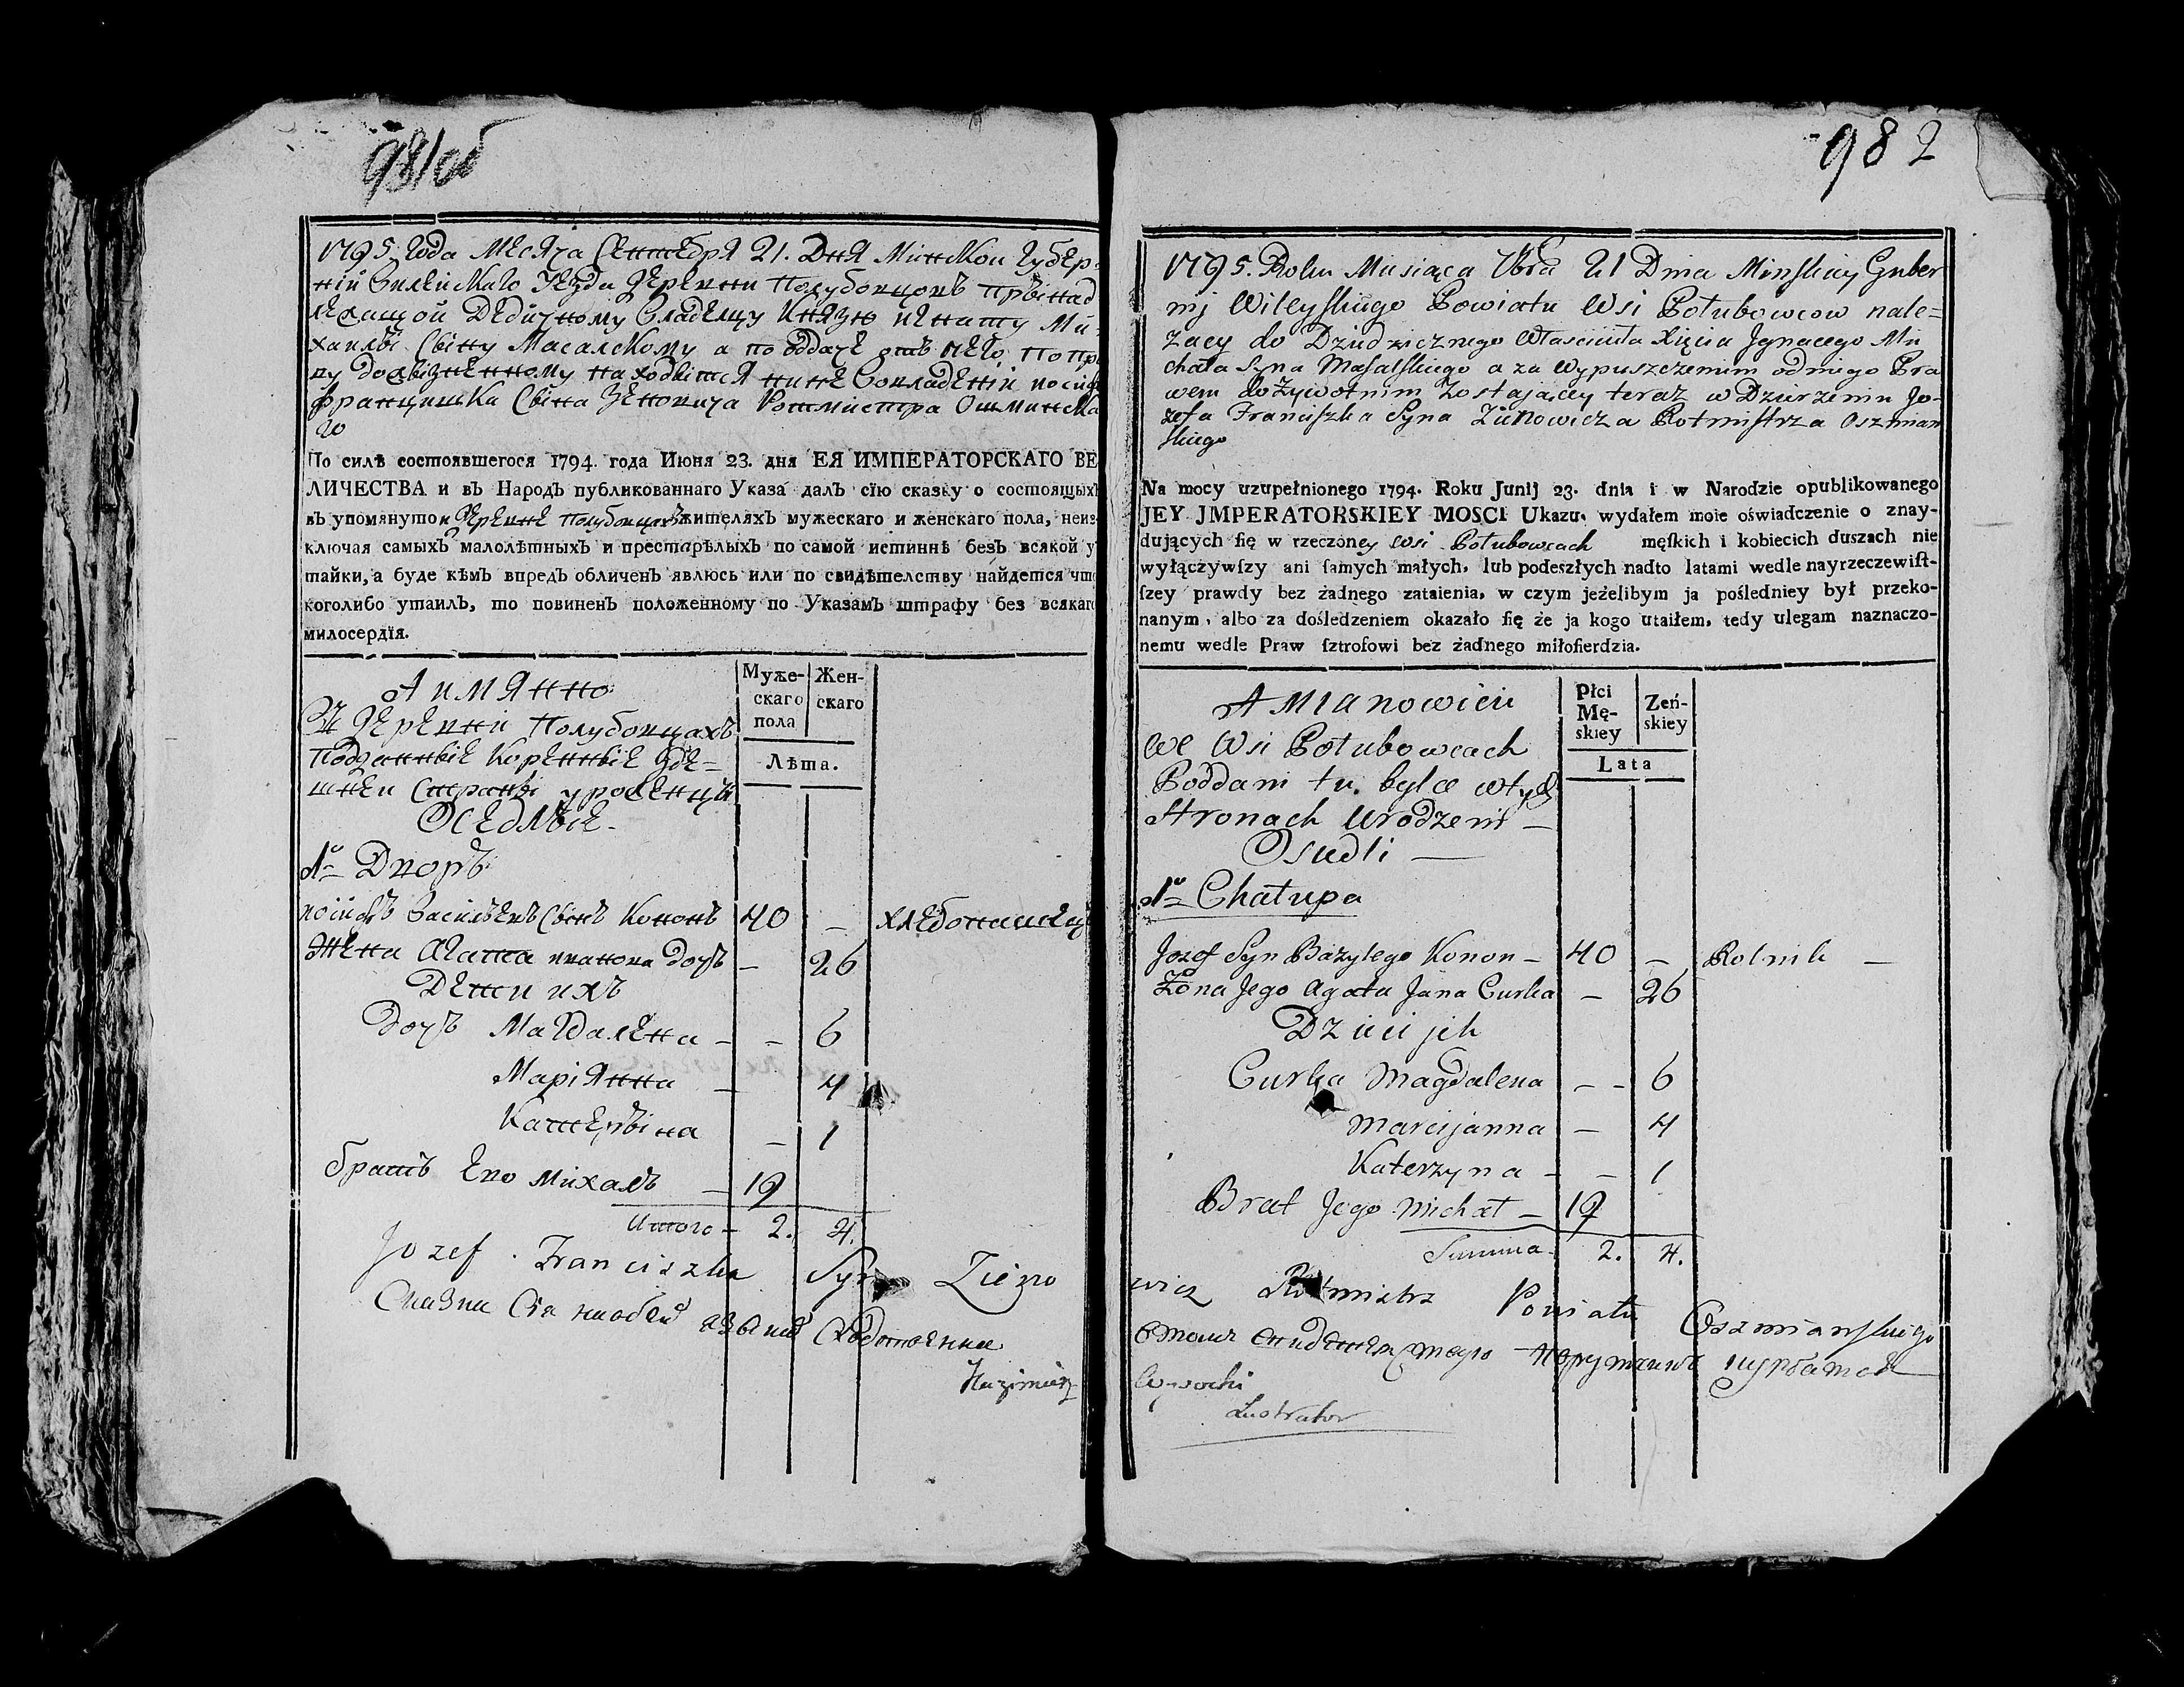 981об
1795. года Месяца Сентебря 21. Дня Минской Губер-
ній Вилейского Уезда Деревни Полубовцовъ прынад
лежащой Дедичному Владелцу Князю Игнату Ми-
хайлы Сыну Масалскому а по оддаче отъ него по пра
ву дожызненному находытся ныне во владеній Іосифа
Францишка Сына Зеновича Ротмистра Ошминска
го
По силѣ состоявшегося 1794. года Июня 23. дня ЕЯ ИМПЕРАТОРСКАГО ВЕ
ЛИЧЕСТВА и въ Народъ публикованнаго Указа далъ сїю сказку о состоящыхъ
въ упомянутои Деревне Полубовцахъ жителяхъ мужескаго и женскаго пола, неиз-
ключая самыхъ малолѣтныхъ и престарѣлыхъ по самой истиннѣ безъ всякой у
тайки, а буде кѣмъ впредъ обличенъ явлюсь или по свидѣтелству найдется что
коголибо утаилъ, то повиненъ положенному по Указамъ штрафу без всякаго
милосердїя.
А имянно:
Муже-
скаго
пола
Жен-
скаго
Лѣта.
Въ Деревни Полубовцахъ
Подданные Коренные зде-
шней Страны уроженцы
Оседлые-
1о Дворъ
Іосифъ Васильевъ Сынъ Кононъ 40 - хлебопашецъ
Жена Агата иванова дочъ - 26
Дети ихъ
дочъ Магдалена - - 6
Маріянна - 4
Катерына - 1
братъ Его Михалъ - 19
Итого - 2. 4.
Jozef Franciszka Syn Zieno
Сказка Сія
Kazimierz
982
1795. Roku Miesiąca 7bra 21 Dnia Minskiey Guber
nij Wileyskiego Powiatu Wsi Połubowcow nale=
zacey do Dziedzicznego Własciciela Xięcia Jgnacego Mi
chała Syna Masalskiego a za wypuszczeniem od niego Pra
wem dożywotnim zostaiącey teraz w Dzierzeniu Jo-
zefa Franciszka Syna Zienowicza Rotmistrza Oszmian
skiego
Na mocy uzupełnionego 1794. Roku Junij 23. dnia i w Narodzie opublikowanego
JEY JMPERATORSKIEY MOSCI Ukazu, wydałem moie oświadczenie o znay-
dujących ſię w rzeczoney Wsi Połubowcach męſkich i kobiecich duszach nie
wyłączywſzy ani ſamych małych, lub podeszłych nadto latami wedle nayrzeczewiſt-
ſzey prawdy bez żadnego zataienia, w czym jeżelibym ja pośledniey był przeko-
nanym, albo za dośledzeniem okazało ſię że ja kogo utaiłem, tedy ulegam naznaczo-
nemu wedle Praw ſztrofowi bez żadnego miłoſierdzia.
A Mianowicie
Płci
Mę-
skiey
Zeń-
skiey
Lata
We Wsi Połubowcach
Poddani tu. bylce w tych
Stronach Urodzeni -
Osiedli -
1o Chałupa
Jozef Syn Bazylego Konon - 40 - Rolnik -
Żona Jego Agata Jana Curka - 26
Dzieci jch
Curka Magdalena - - 6
Marcijanna - 4
Katerzyna - - 1
Brat Jego Michał - 19
Summa - 2. 4.
wicz Rotmistrz Powiatu Oszmianskiego
Lustrator